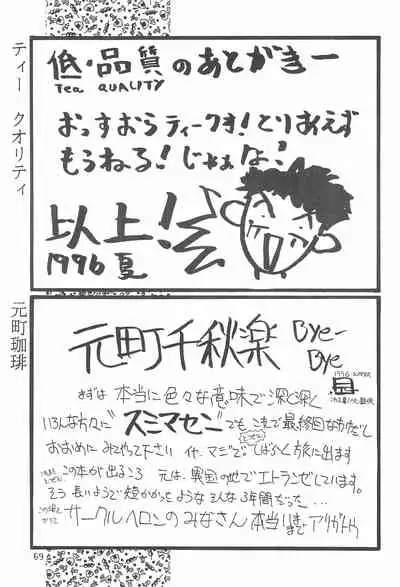 ティー クオリティ
低・品質のあとがきー
Tea QUALITY
おっすおらティークオ!とりあえず
もうねる!じゃぁな?
以上!
1996 夏
元町珈琲
元町千秋楽
Bye-
Bye
1996
まずは 本当に色々な意味で深く深く
いろんな方々に"スミマセン"でも これで最終回なわけだし
おおめに みてやって下さい イヤ、マジで しばらく旅に出ます
この本が出るころ 元は、異国の地でエトランゼしています。
そう 長いようで短かかったような そんな3年間だった…
サークルヘロンのみなさん 本当に アリガトウ
69